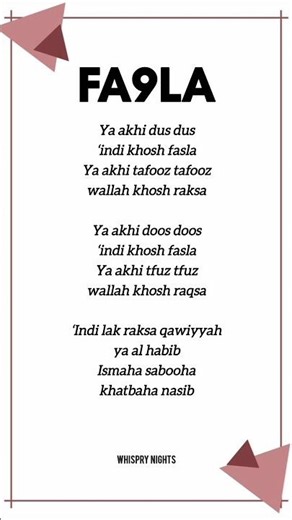 FA9LA
Ya akhi dus dus
‘indi khosh fasla
Ya akhi tafooz tafooz
wallah khosh raksa
Ya akhi doos doos
‘indi khosh fasla
Ya akhi tfuz tfuz
wallah khosh raqsa
‘Indi lak raksa qawiyyah
ya al habib
Ismaha sabooha
khatbaha nasib
WHISPRY NIGHTS